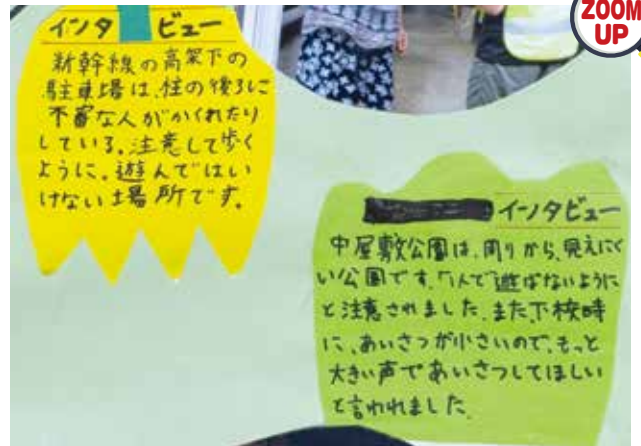 ZOOM
UP
インタビュー
新幹線の高架下の
駐車場は、柱の後ろに
不審な人がかくれたり
している。注意して歩く
ように。遊んではい
けない場所です。
インタビュー
中屋敷公園は、周りから、見えにく
い公園です。「1人で」遊ばないように
と注意されました。また、下校時
に、あいさつが小さいので、もっと
大きい声であいさつしてほしい
と言われました。